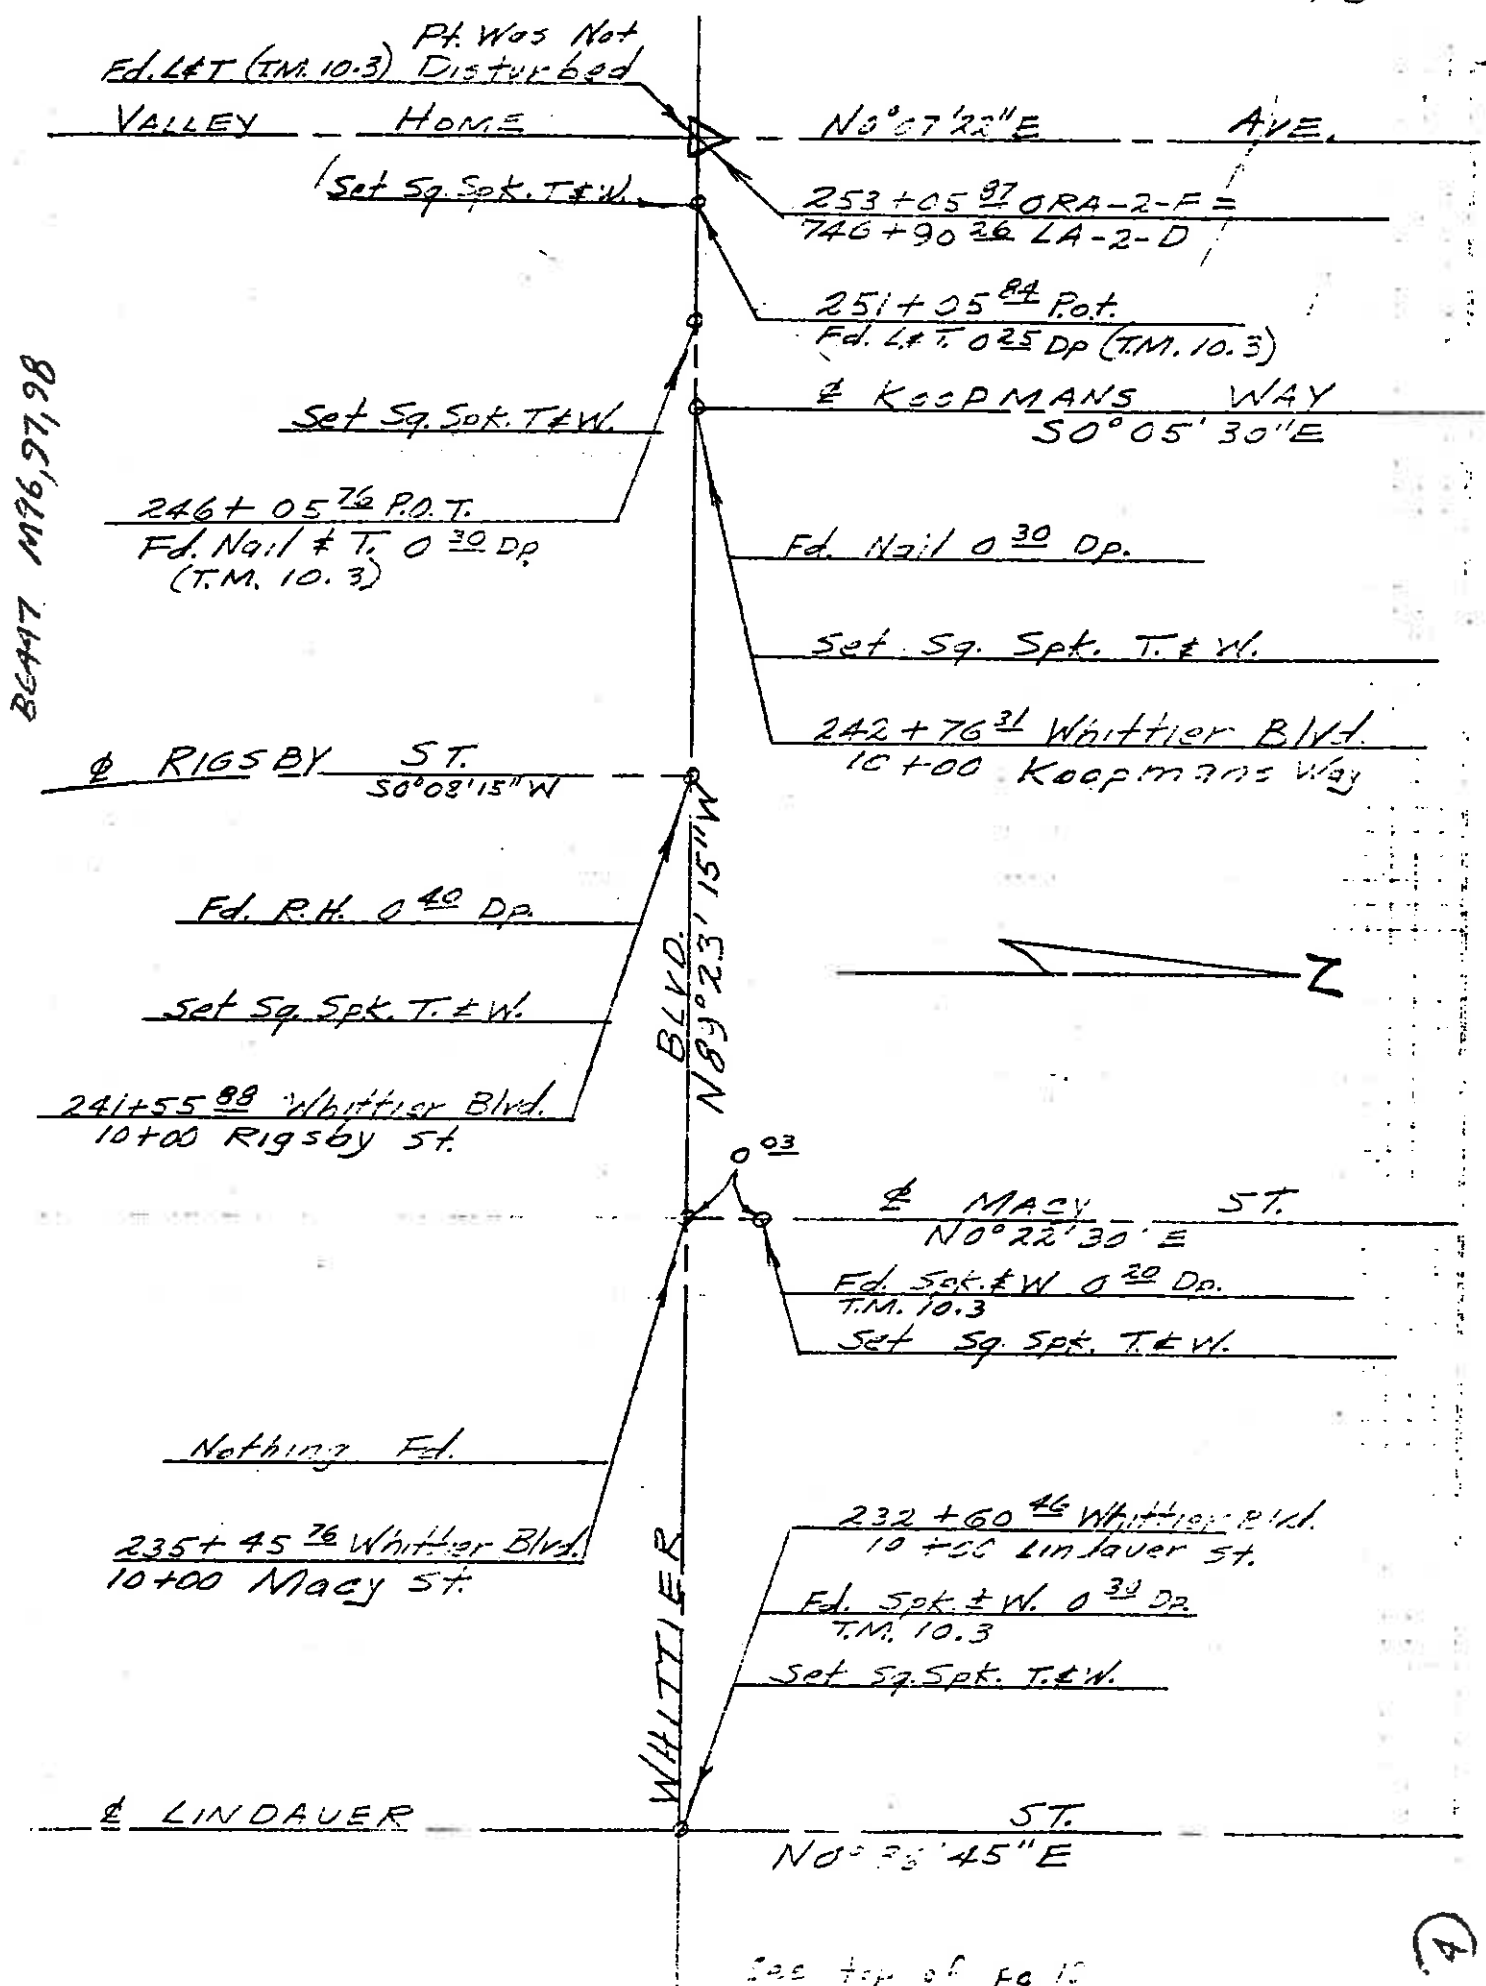 Pt. Was Not
Fd. L&T (T.M. 10.3) Disturbed
VALLEY HOME N0°07'22"E AVE.
Set Sq. Spk. T&W.
253+05 87 ORA-2-F =
746+90 26 LA-2-D
251+05 84 P.o.t.
Fd. L&T. 0 25 Dp (T.M. 10.3)
℄ KOOPMANS WAY
S0°05'30"E
Set Sq. Spk. T&W.
246+05 76 P.O.T.
Fd. Nail & T. 0 30 Dp
(T.M. 10.3)
Fd. Nail 0 30 Dp.
Set Sq. Spk. T.&W.
242+76 31 Whittier Blvd.
10+00 Koopmans Way
M96,97,98
℄ RIGSBY ST.
S0°08'15"W
Fd. R.H. 0 40 Dp.
Set Sq. Spk. T.&W.
241+55 88 Whittier Blvd.
10+00 Rigsby St.
WHITTIER BLVD.
N89°23'15"W
Z
0 03
℄ MACY ST.
N0°22'30"E
Fd. Spk.&W 0 20 Dp.
T.M. 10.3
Set Sq. Spk. T.&W.
Nothing Fd.
235+45 76 Whittier Blvd.
10+00 Macy St.
232+60 46 Whittier Blvd.
10+00 Lindauer St.
Fd. Spk.&W. 0 30 Dp.
T.M. 10.3
Set Sq. Spk. T.&W.
℄ LINDAUER ST.
45"E
See top of
4